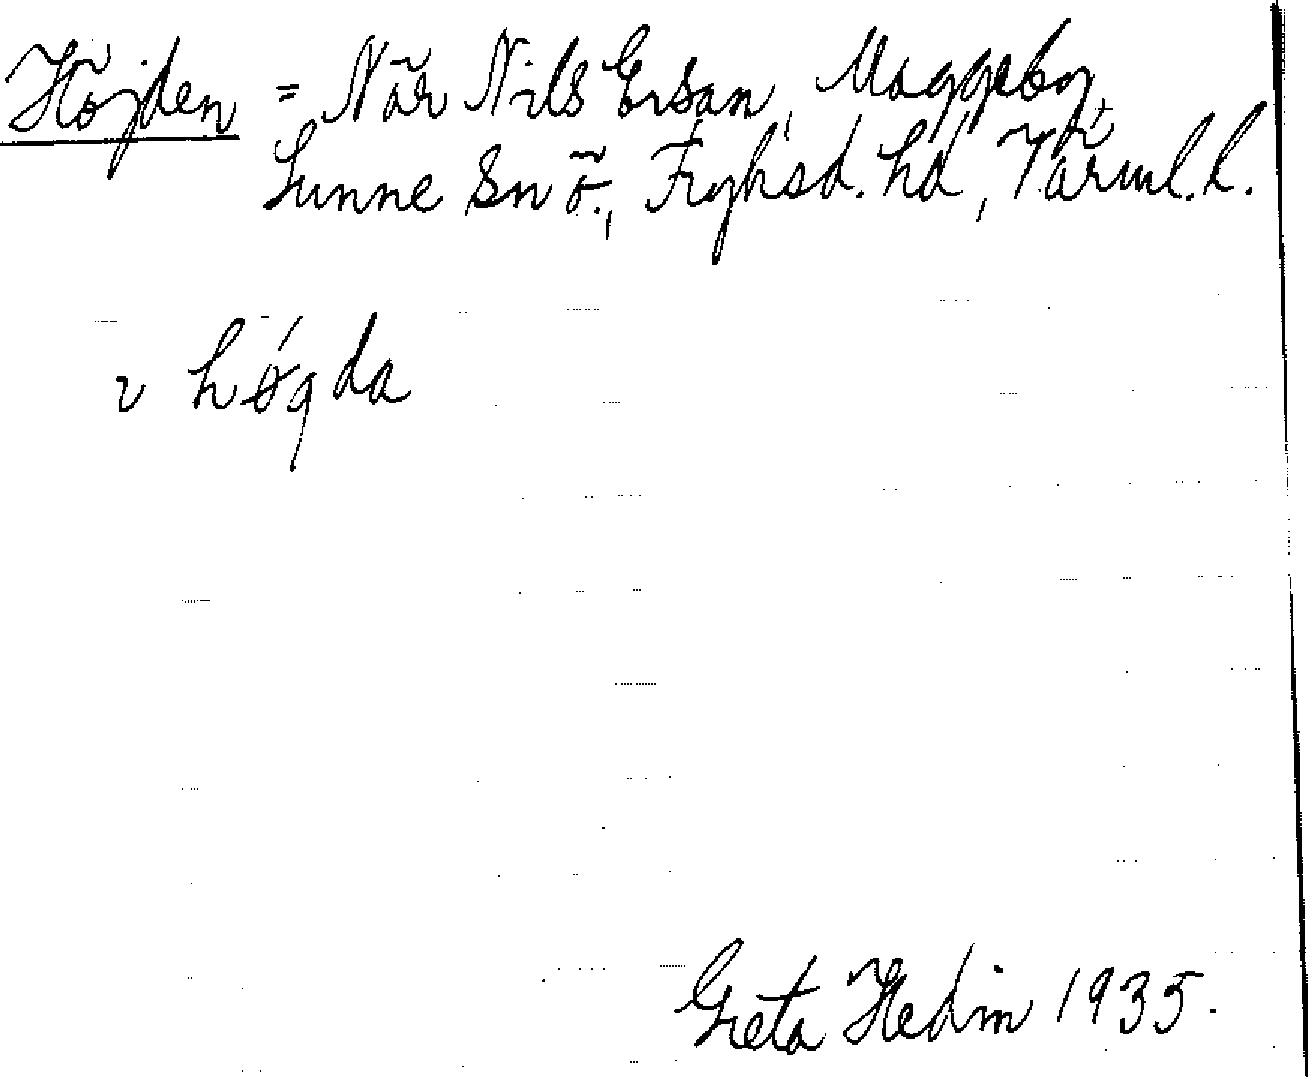 Höjden = När Nils Ersan, Maggeby,
Sunne Sn ö., Fryksd. hd, Värml. l.
ɩ høgda
Greta Hedin 1935.